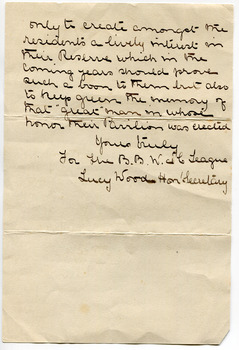 only to create amongst the
residents a lively interest in
their Reserve which in the
coming years should prove
such a boon to them but also
to keep green the memory of
that great man in whose
honor their Pavilion was erected
Yours truly
For the B.B.W. & C League
Lucy Wood Hon Secretary